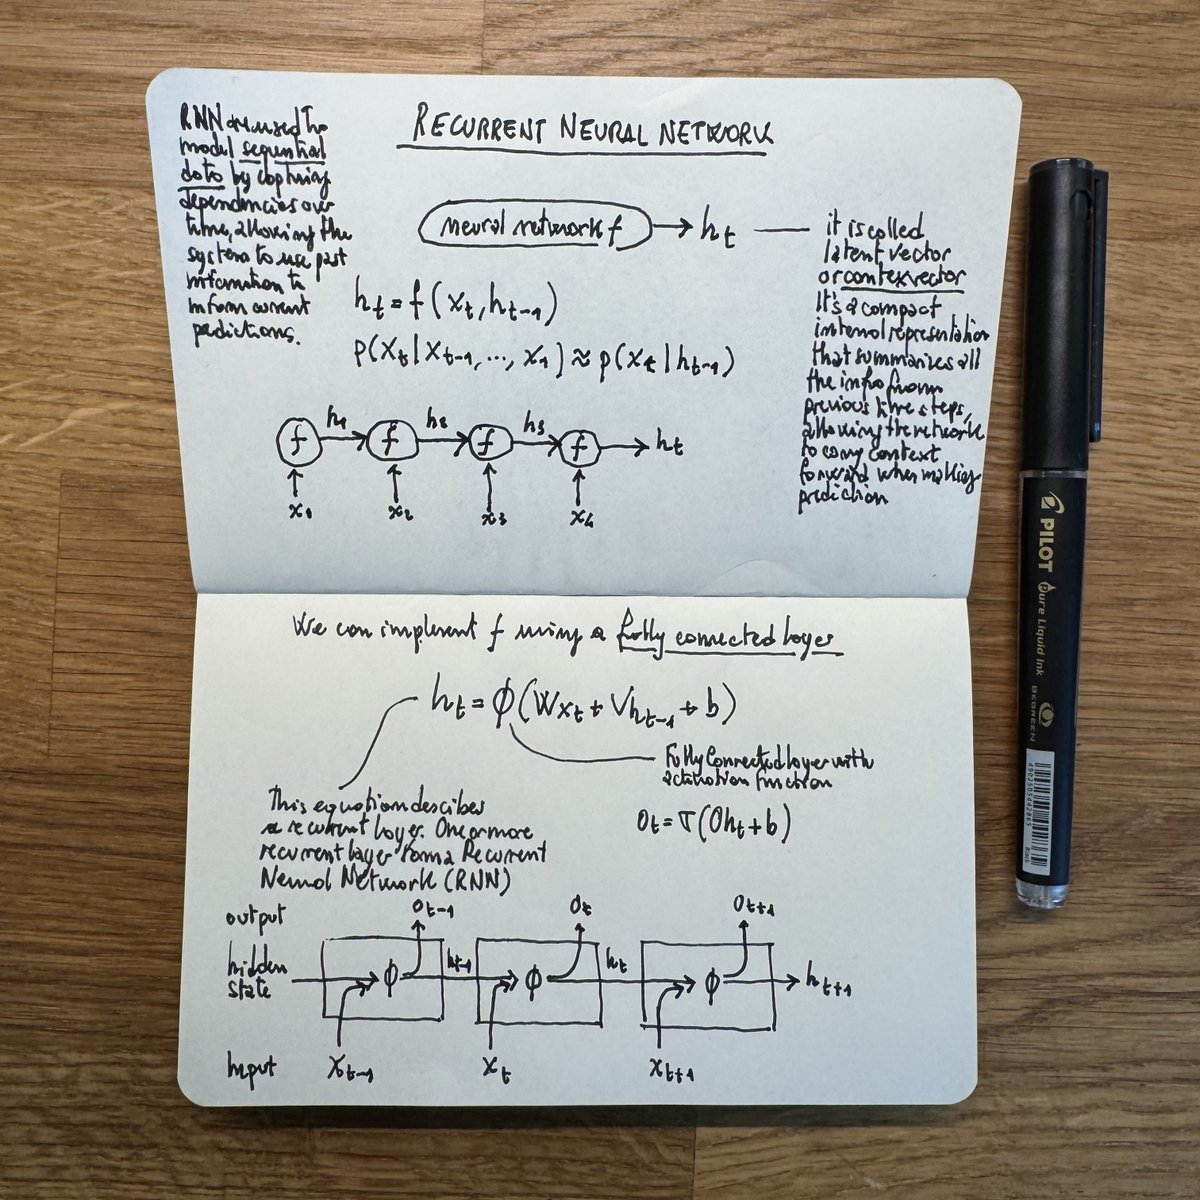 RECURRENT NEURAL NETWORK
RNN are used to
model sequential
data by capturing
dependencies over
time, allowing the
system to use past
information to
inform current
predictions.
neural network f → ht
it is called
latent vector
or contex vector
It's a compact
internal representation
that summarizes all
the info from
previous time steps,
allowing the network
to carry context
forward when making
prediction
ht = f(xt, ht-1)
p(xt | xt-1, ..., x1) ≈ p(xt | ht-1)
f h1 f h2 f h3 f ht
x1 x2 x3 x4
We can implement f using a fully connected layer
ht = ϕ(Wxt + Vht-1 + b)
Fully Connected layer with
activation function
This equation describes
a recurrent layer. One or more
recurrent layer form a Recurrent
Neural Network (RNN)
Ot = σ(Oht + b)
output Ot-1 Ot Ot+1
hidden
state
ϕ ht-1 ϕ ht ϕ ht+1
Input xt-1 xt xt+1
PILOT
Pure Liquid Ink
BEGREEN
4902505442865
Black